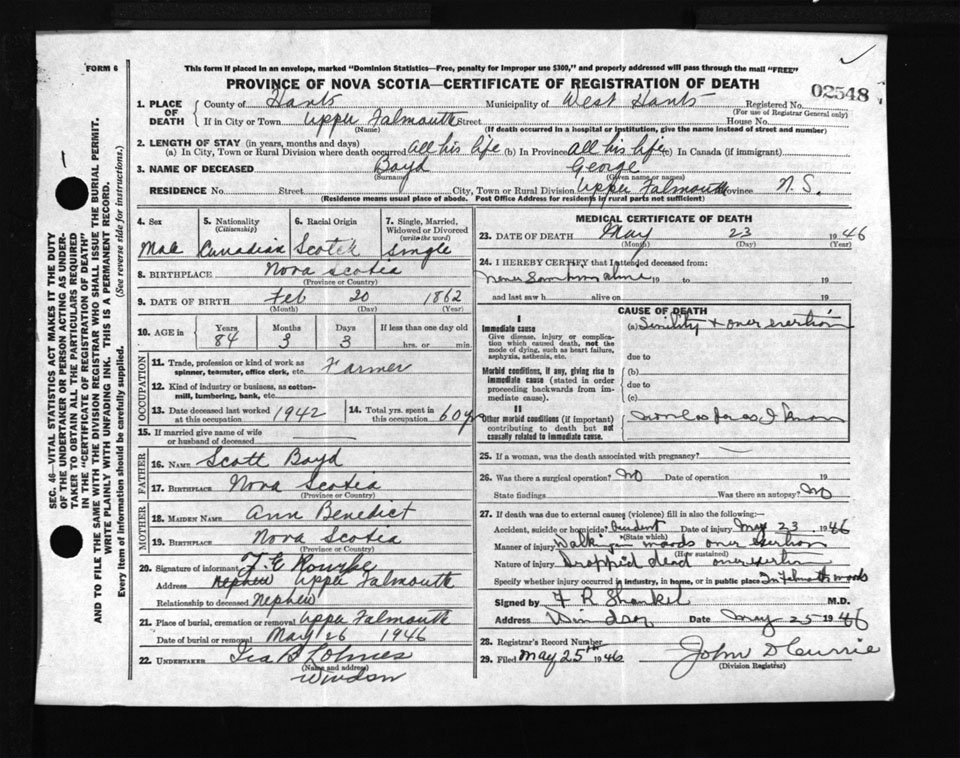 FORM 6
This form if placed in an envelope, marked "Dominion Statistics—Free, penalty for improper use $300," and properly addressed will pass through the mail "FREE"
PROVINCE OF NOVA SCOTIA—CERTIFICATE OF REGISTRATION OF DEATH
02548
1. PLACE OF DEATH County of Hants Municipality of West Hants Registered No.
(For use of Registrar General only)
If in City or Town Upper Falmouth Street House No.
(Name) (If death occurred in a hospital or institution, give the name instead of street and number)
2. LENGTH OF STAY (in years, months and days)
(a) In City, Town or Rural Division where death occurred all his life (b) In Province all his life (c) In Canada (if immigrant)
3. NAME OF DECEASED Boyd George
(Surname) (Given name or names)
RESIDENCE No. Street City, Town or Rural Division Upper Falmouth Province N.S.
(Residence means usual place of abode. Post Office Address for residents in rural parts not sufficient)
4. Sex Male
5. Nationality (Citizenship) Canadian
6. Racial Origin Scotch
7. Single, Married, Widowed or Divorced (write the word) Single
8. BIRTHPLACE Nova Scotia
(Province or Country)
9. DATE OF BIRTH Feb 20 1862
(Month) (Day) (Year)
10. AGE in Years 84 Months 3 Days 3 If less than one day old hrs. or min.
OCCUPATION
11. Trade, profession or kind of work as spinner, teamster, office clerk, etc. Farmer
12. Kind of industry or business, as cotton-mill, lumbering, bank, etc.
13. Date deceased last worked at this occupation 1942
14. Total yrs. spent in this occupation 60 yrs
15. If married give name of wife or husband of deceased
FATHER
16. NAME Scott Boyd
17. BIRTHPLACE Nova Scotia
(Province or Country)
MOTHER
18. MAIDEN NAME Ann Benedict
19. BIRTHPLACE Nova Scotia
(Province or Country)
20. Signature of informant F E Rourke
Address Nephew Upper Falmouth
Relationship to deceased Nephew
21. Place of burial, cremation or removal Upper Falmouth
Date of burial or removal May 26 1946
22. UNDERTAKER Ira B Lohnes
(Name and address)
Windsor
MEDICAL CERTIFICATE OF DEATH
23. DATE OF DEATH May 23 1946
(Month) (Day) (Year)
24. I HEREBY CERTIFY that I attended deceased from:
never saw him alive 19 to 19
and last saw h alive on 19
CAUSE OF DEATH
I
Immediate cause
Give disease, injury or complication which caused death, not the mode of dying, such as heart failure, asphyxia, asthenia, etc.
(a) Senility & over exertion
due to
Morbid conditions, if any, giving rise to immediate cause (stated in order proceeding backwards from immediate cause).
(b)
due to
(c)
II
Other morbid conditions (if important) contributing to death but not causally related to immediate cause.
none as far as I know
25. If a woman, was the death associated with pregnancy?
26. Was there a surgical operation? No Date of operation 19
State findings Was there an autopsy? No
27. If death was due to external causes (violence) fill in also the following:—
Accident, suicide or homicide? Accident Date of injury May 23 1946
(State which)
Manner of injury Walking in woods over exertion
(How sustained)
Nature of injury Dropped dead over exertion
Specify whether injury occurred in industry, in home, or in public place In Falmouth woods
Signed by F R Shankel M.D.
Address Windsor Date May 25 1946
28. Registrar's Record Number
29. Filed May 25th 1946 John D Currie
(Division Registrar)
SEC. 46—VITAL STATISTICS ACT MAKES IT THE DUTY
OF THE UNDERTAKER OR PERSON ACTING AS UNDER-
TAKER TO OBTAIN ALL THE PARTICULARS REQUIRED
IN THE "CERTIFICATE OF REGISTRATION OF DEATH"
AND TO FILE THE SAME WITH THE DIVISION REGISTRAR WHO SHALL ISSUE THE BURIAL PERMIT.
WRITE PLAINLY WITH UNFADING INK. THIS IS A PERMANENT RECORD.
Every item of information should be carefully supplied. (See reverse side for instructions.)